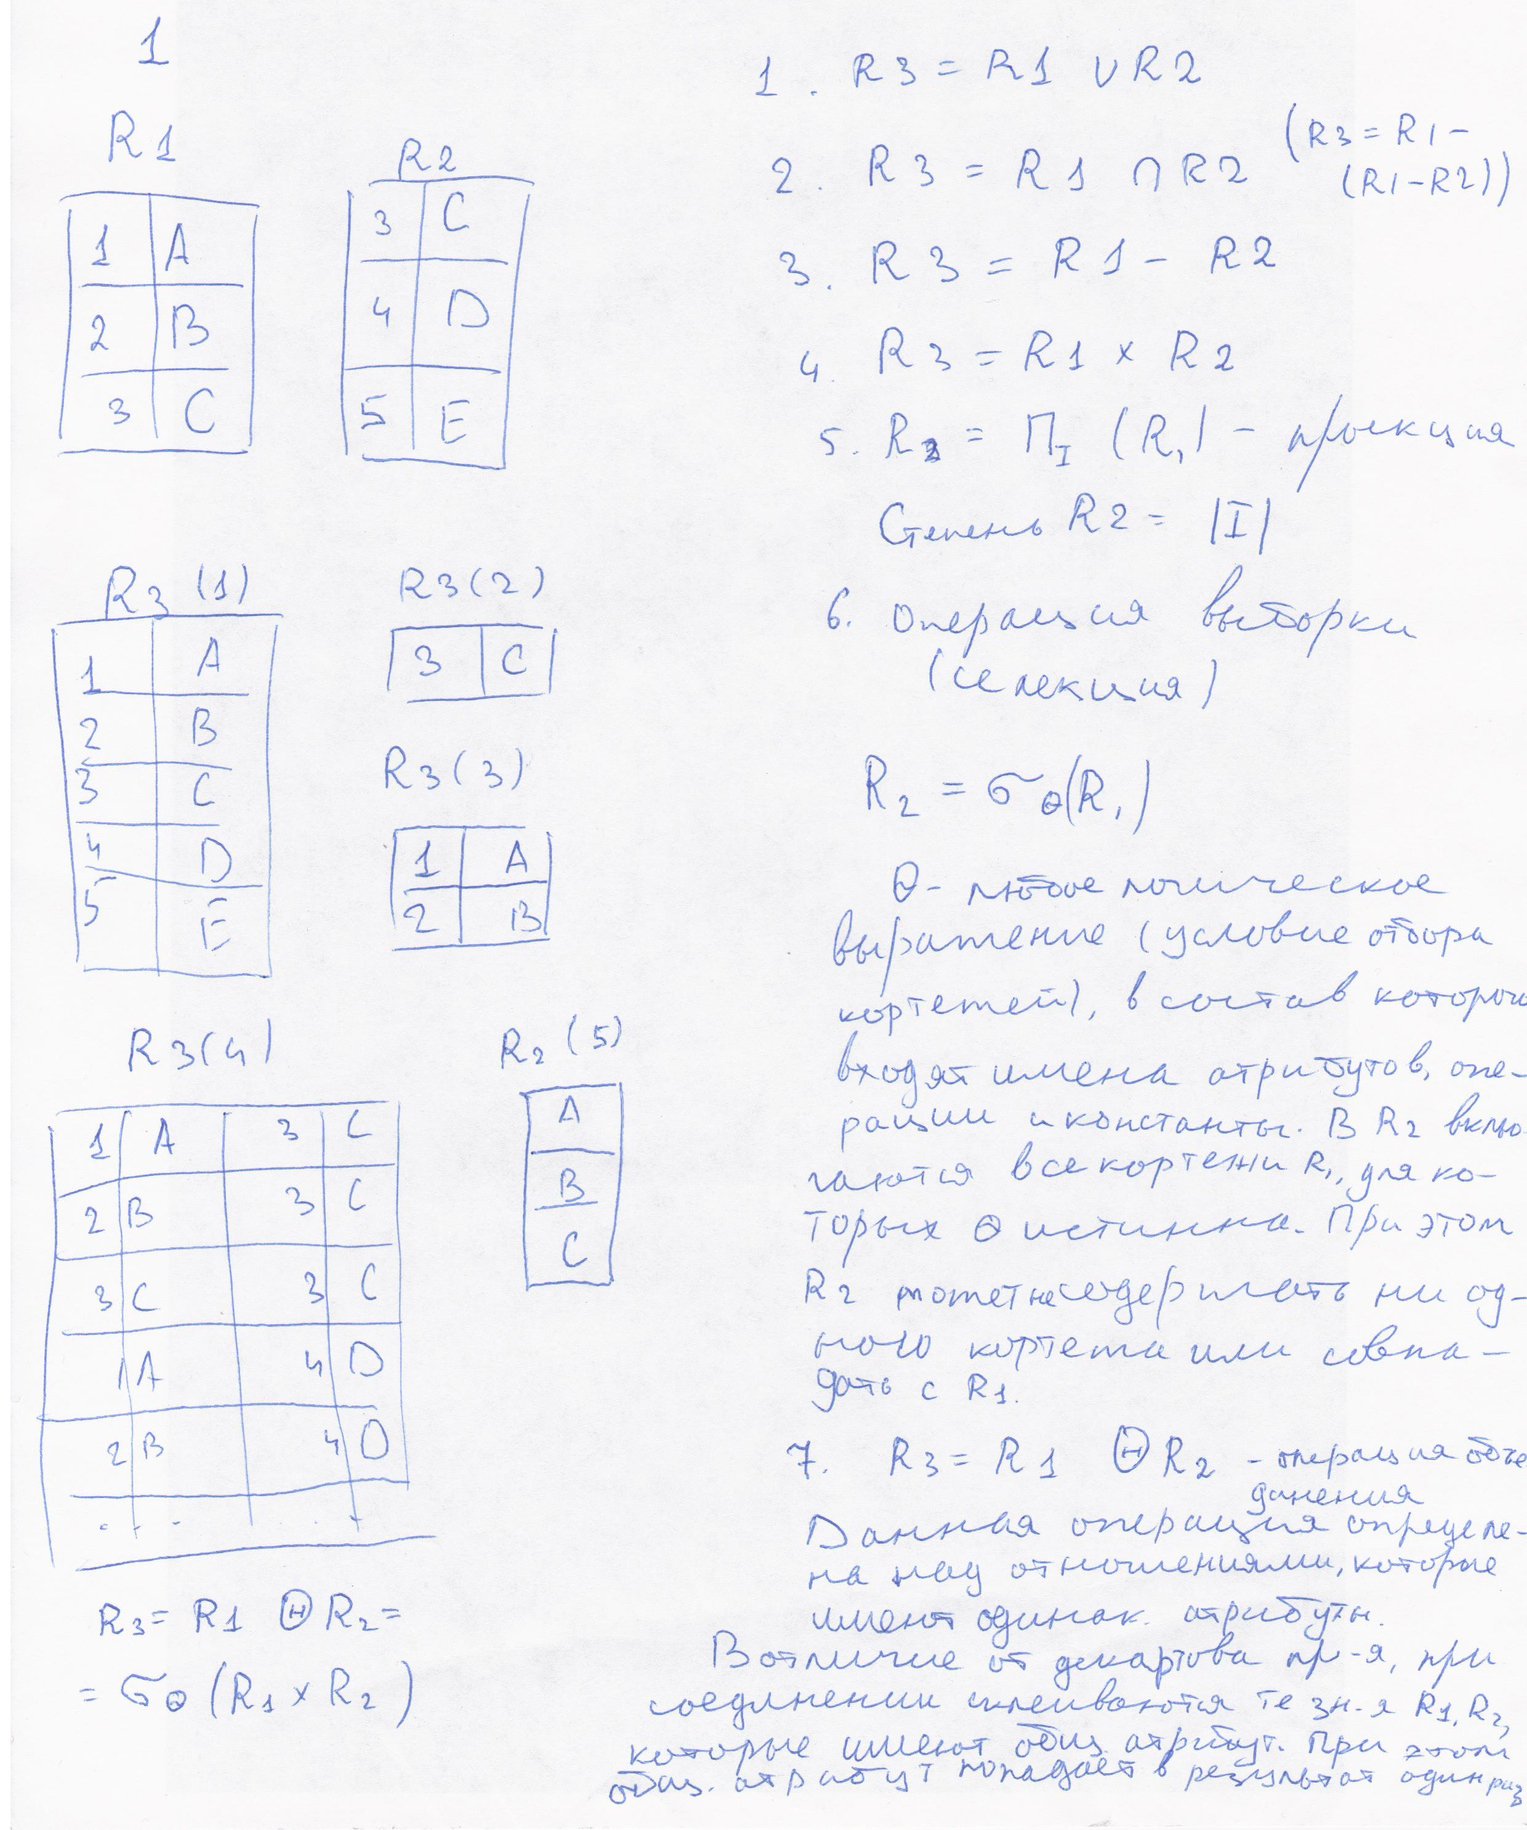 1
R1
1 A
2 B
3 C
R2
3 C
4 D
5 E
R3 (1)
1 A
2 B
3 C
4 D
5 E
R3(2)
3 C
R3(3)
1 A
2 B
R3(4)
1 A 3 C
2 B 3 C
3 C 3 C
1 A 4 D
2 B 4 D
. . . . .
R2 (5)
A
B
C
R3 = R1 Θ R2 =
= σθ (R1 × R2)
1. R3 = R1 ∪ R2
2. R3 = R1 ∩ R2 (R3 = R1 -
(R1-R2))
3. R3 = R1 - R2
4. R3 = R1 × R2
5. R2 = ПI (R1) - проекция
Степень R2 = |I|
6. Операция выборки
(селекция)
R2 = σθ(R1)
θ - любое логическое
выражение (условие отбора
кортежей), в состав которого
входят имена атрибутов, опе-
рации и константы. В R2 вклю
чаются все кортежи R1, для ко-
торых θ истинна. При этом
R2 может не содержать ни од-
ного кортежа или совпа-
дать с R1.
7. R3 = R1 Θ R2 - операция объе
динения
Данная операция определе-
на над отношениями, которые
имеют одинак. атрибуты.
В отличие от декартова пр-я, при
соединении склеиваются те зн-я R1, R2,
которые имеют общ. атрибут. При этом
общ. атрибут попадает в результат один раз